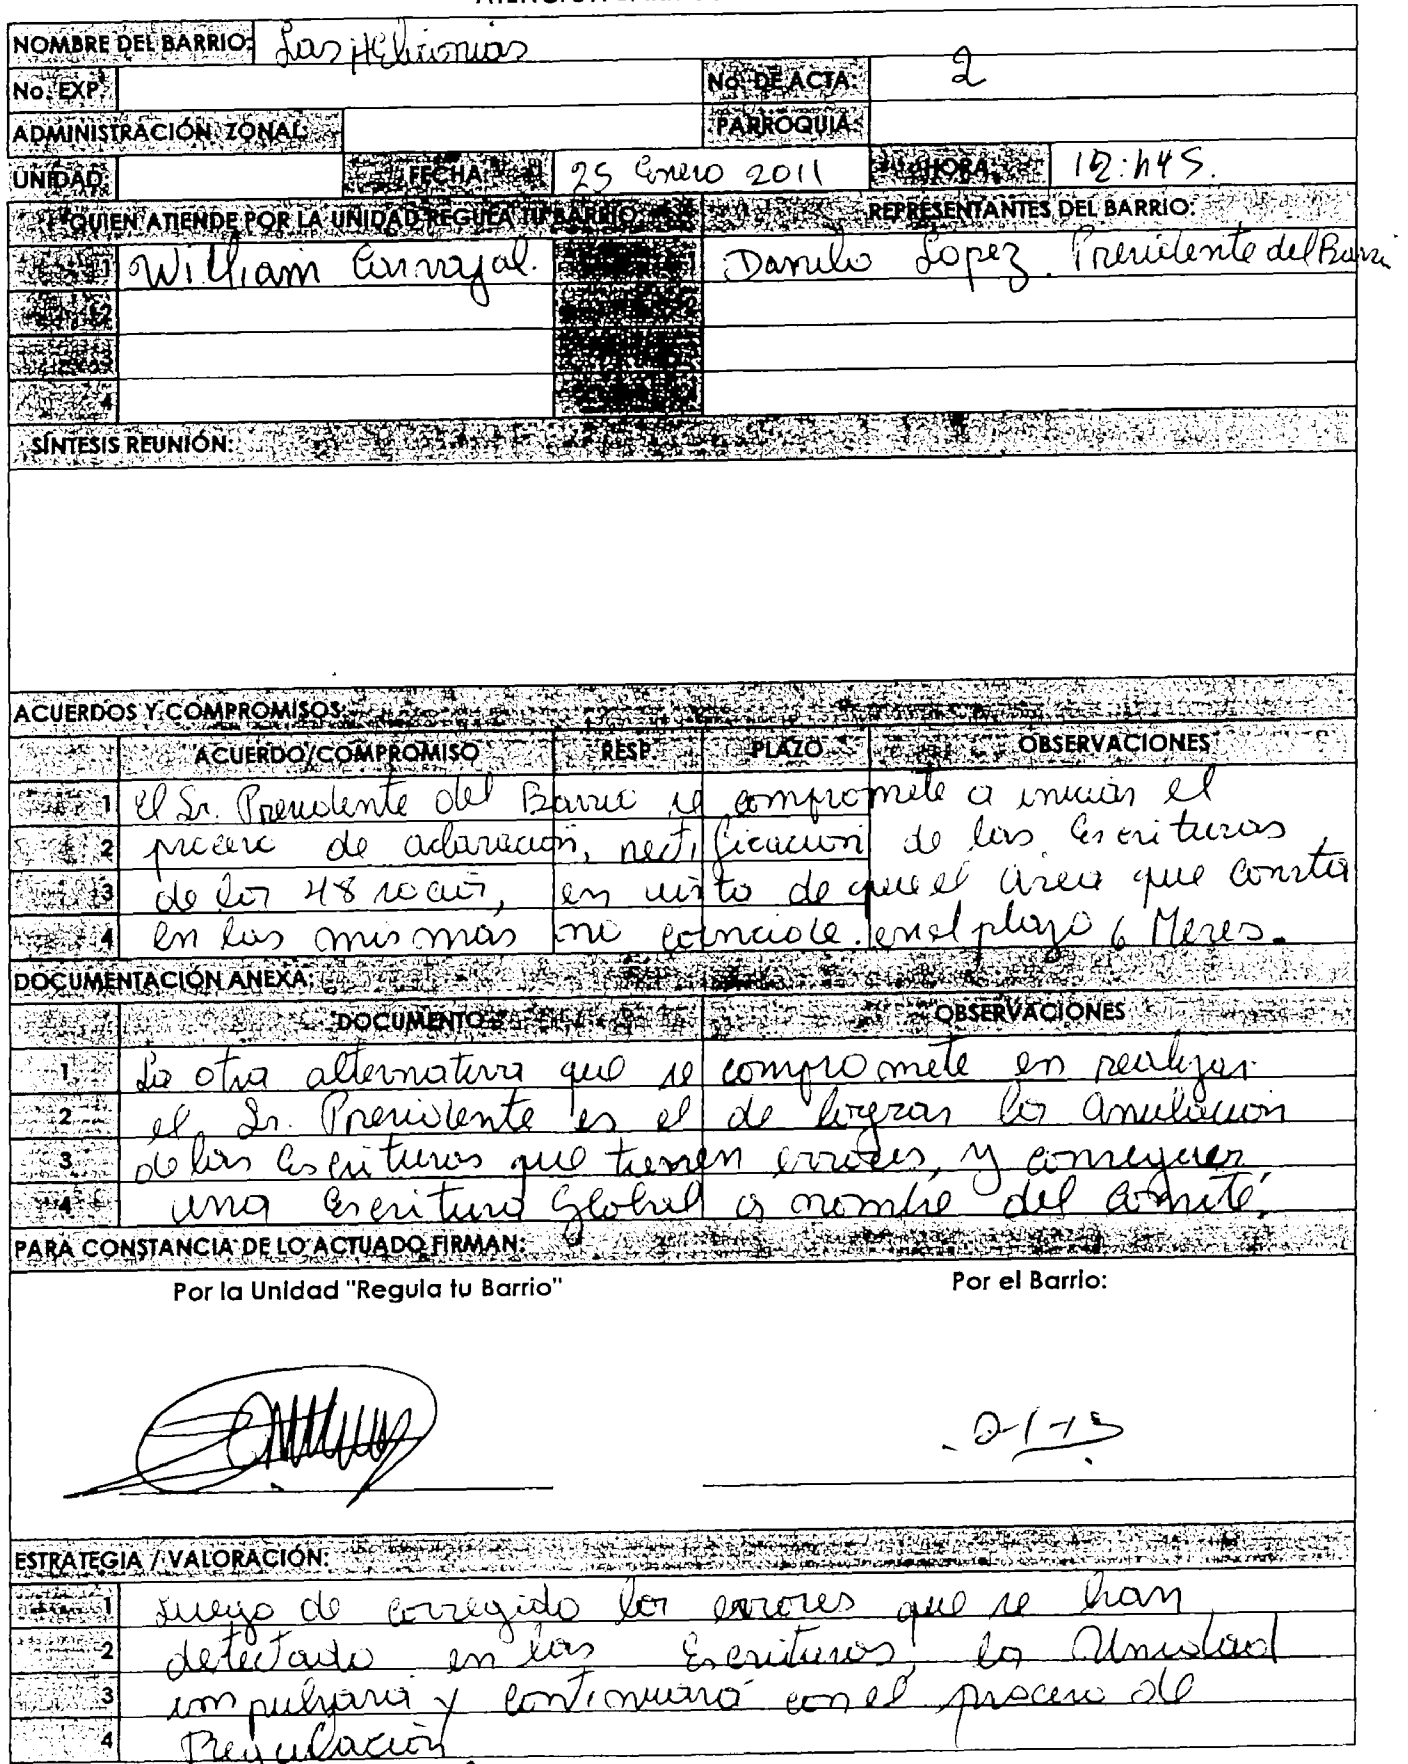 NOMBRE DEL BARRIO: Las Heliconias
No. EXP. No. DE ACTA: 2
ADMINISTRACIÓN ZONAL: PARROQUIA:
UNIDAD: FECHA: 25 Enero 2011 HORA: 12:h45.
QUIEN ATIENDE POR LA UNIDAD REGULA TU BARRIO: REPRESENTANTES DEL BARRIO:
1 William Carvajal. Danilo Lopez. Presidente del Barrio
2
3
4
SÍNTESIS REUNIÓN:
ACUERDOS Y COMPROMISOS:
ACUERDO/COMPROMISO RESP. PLAZO OBSERVACIONES
1 El Sr. Presidente del Barrio se compromete a iniciar el
2 proceso de aclaración, rectificacion de las Escrituras
3 de los 48 socios, en visto de que el área que consta
4 en las mismas no coincide. en el plazo 6 Meses.
DOCUMENTACIÓN ANEXA:
DOCUMENTO OBSERVACIONES
1 La otra alternativa que se compromete en realizar
2 el Sr. Presidente es el de lograr la anulación
3 de las Escrituras que tienen errores, y conseguir
4 una Escritura Global a nombre del Comité.
PARA CONSTANCIA DE LO ACTUADO FIRMAN:
Por la Unidad "Regula tu Barrio" Por el Barrio:
ESTRATEGIA / VALORACIÓN:
1 Luego de corregido los errores que se han
2 detectado en las Escrituras, la Unidad
3 impulsará y continuará con el proceso de
4 Regulación